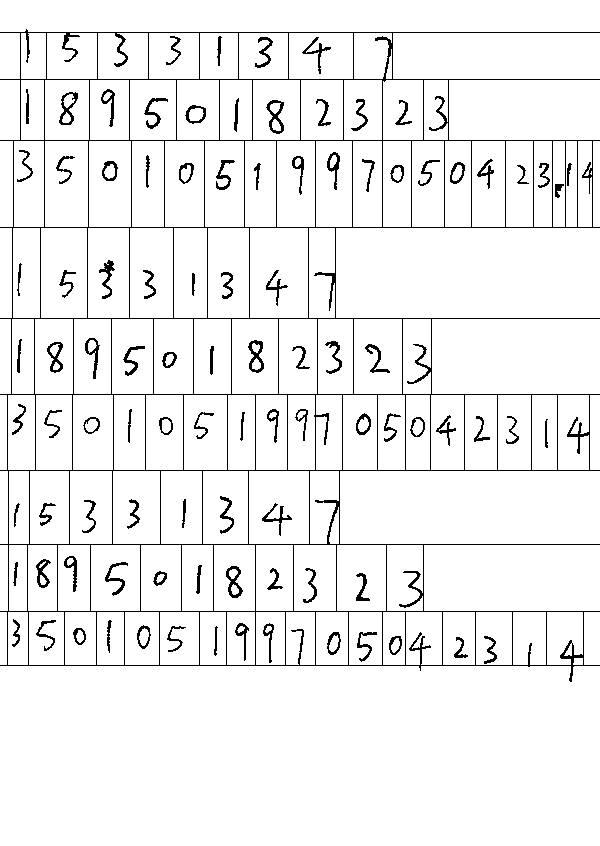 15331347
18950182323
350105199705042314
15331347
18950182323
350105199705042314
15331347
18950182323
350105199705042314